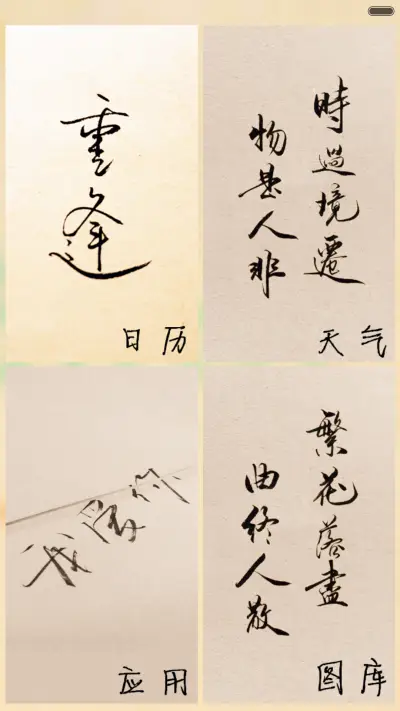 重逢
日历
時過境遷
物是人非
天气
我愛你
应用
繁花落盡
曲終人散
图库